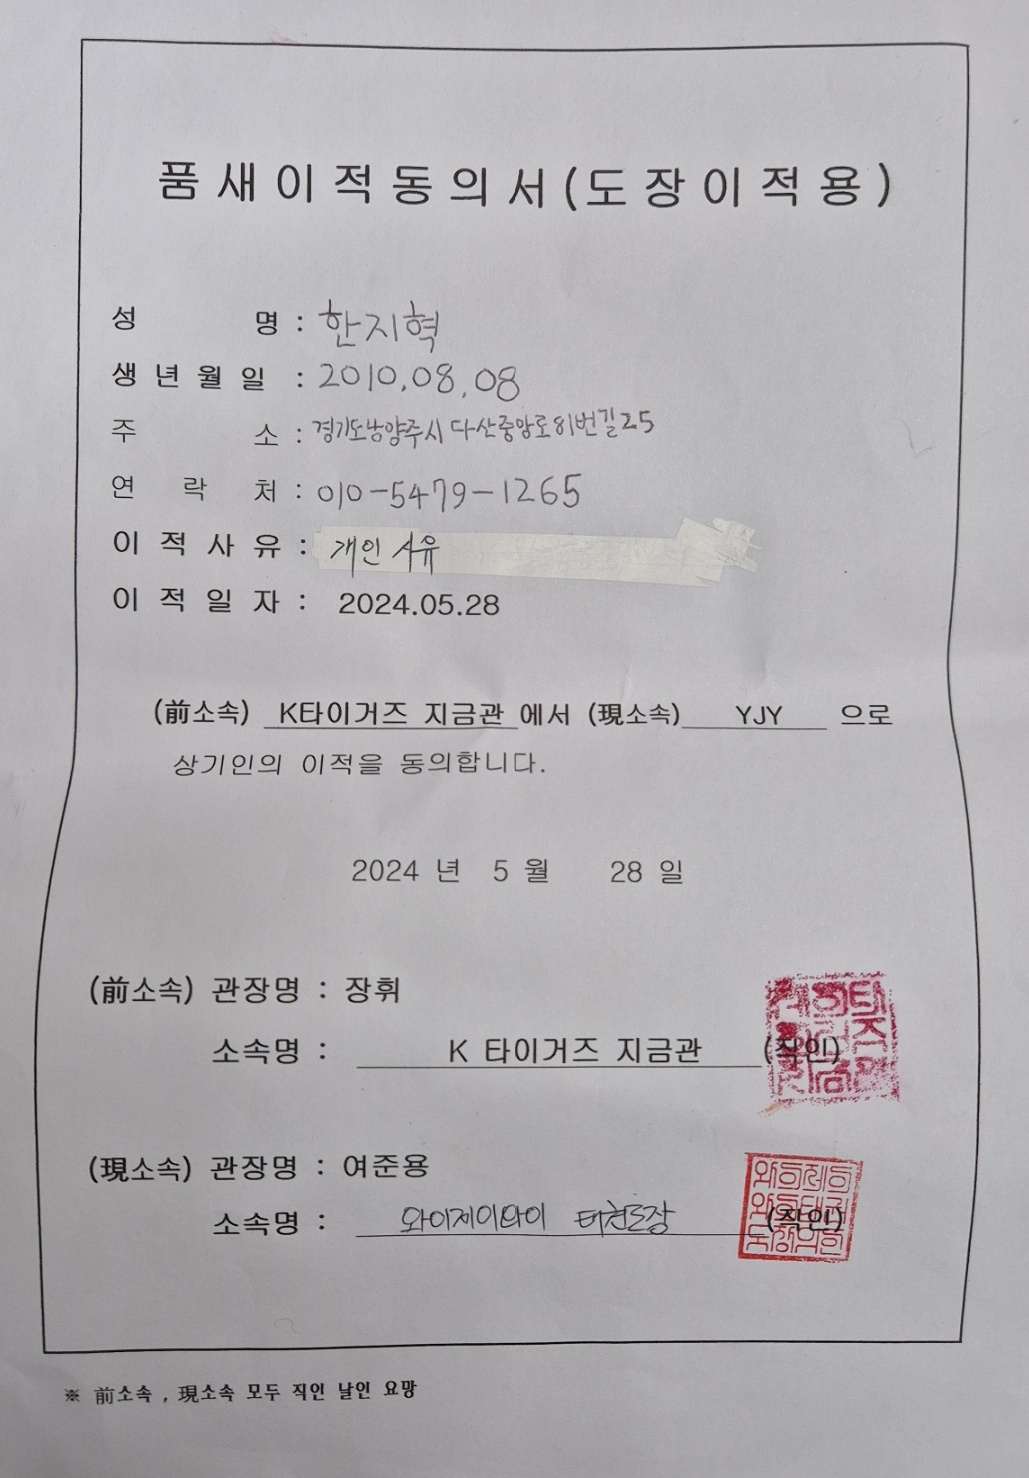 품새이적동의서(도장이적용)
성 명 : 한지혁
생년월일 : 2010.08.08
주 소 : 경기도남양주시 다산중앙로81번길25
연 락 처 : 010-5479-1265
이적사유 : 개인 사유
이적일자 : 2024.05.28
(前소속) K타이거즈 지금관 에서 (現소속) YJY 으로
상기인의 이적을 동의합니다.
2024 년 5 월 28 일
(前소속) 관장명 : 장휘
소속명 : K 타이거즈 지금관 (직인)
(現소속) 관장명 : 여준용
소속명 : 와이제이와이 태권도장 (직인)
※ 前소속 , 現소속 모두 직인 날인 요망